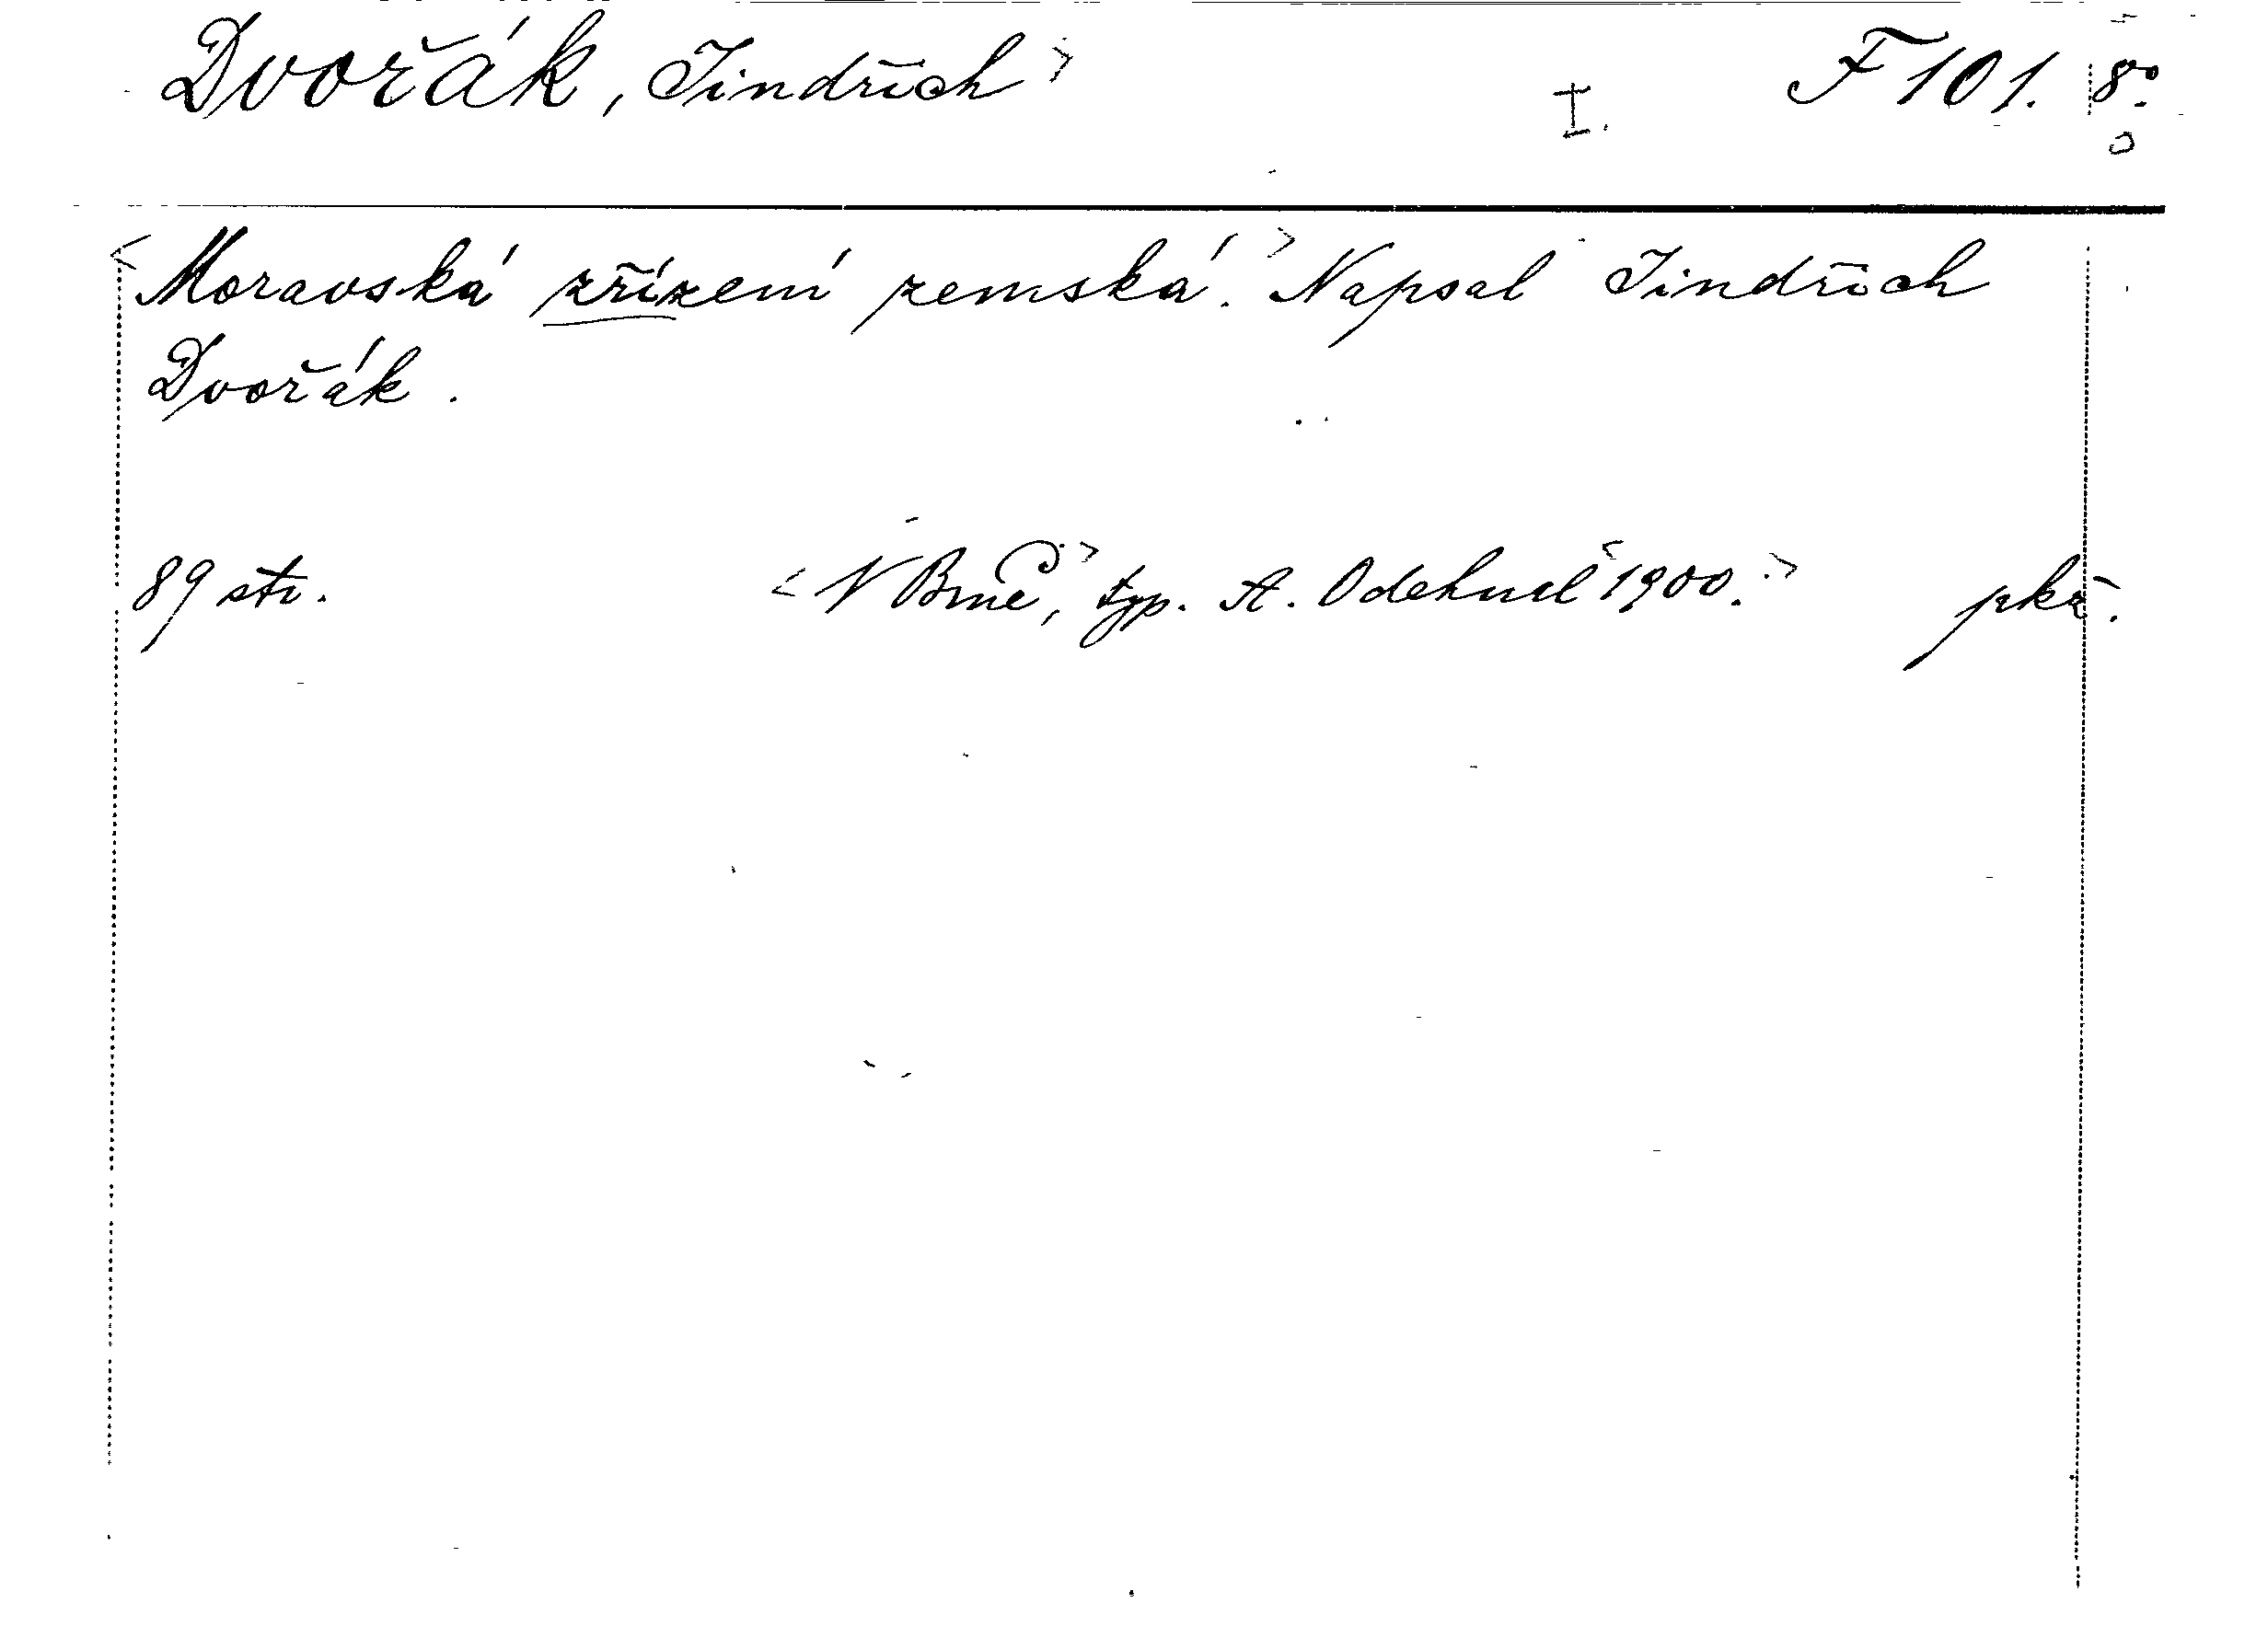 Dvořák, Jindřich > I. F 101. 8°.
< Moravská zřízení zemská. > Napsal Jindřich
Dvořák.
89 str. < V Brně, > typ. A. Odehnal < 1900. > pkř.